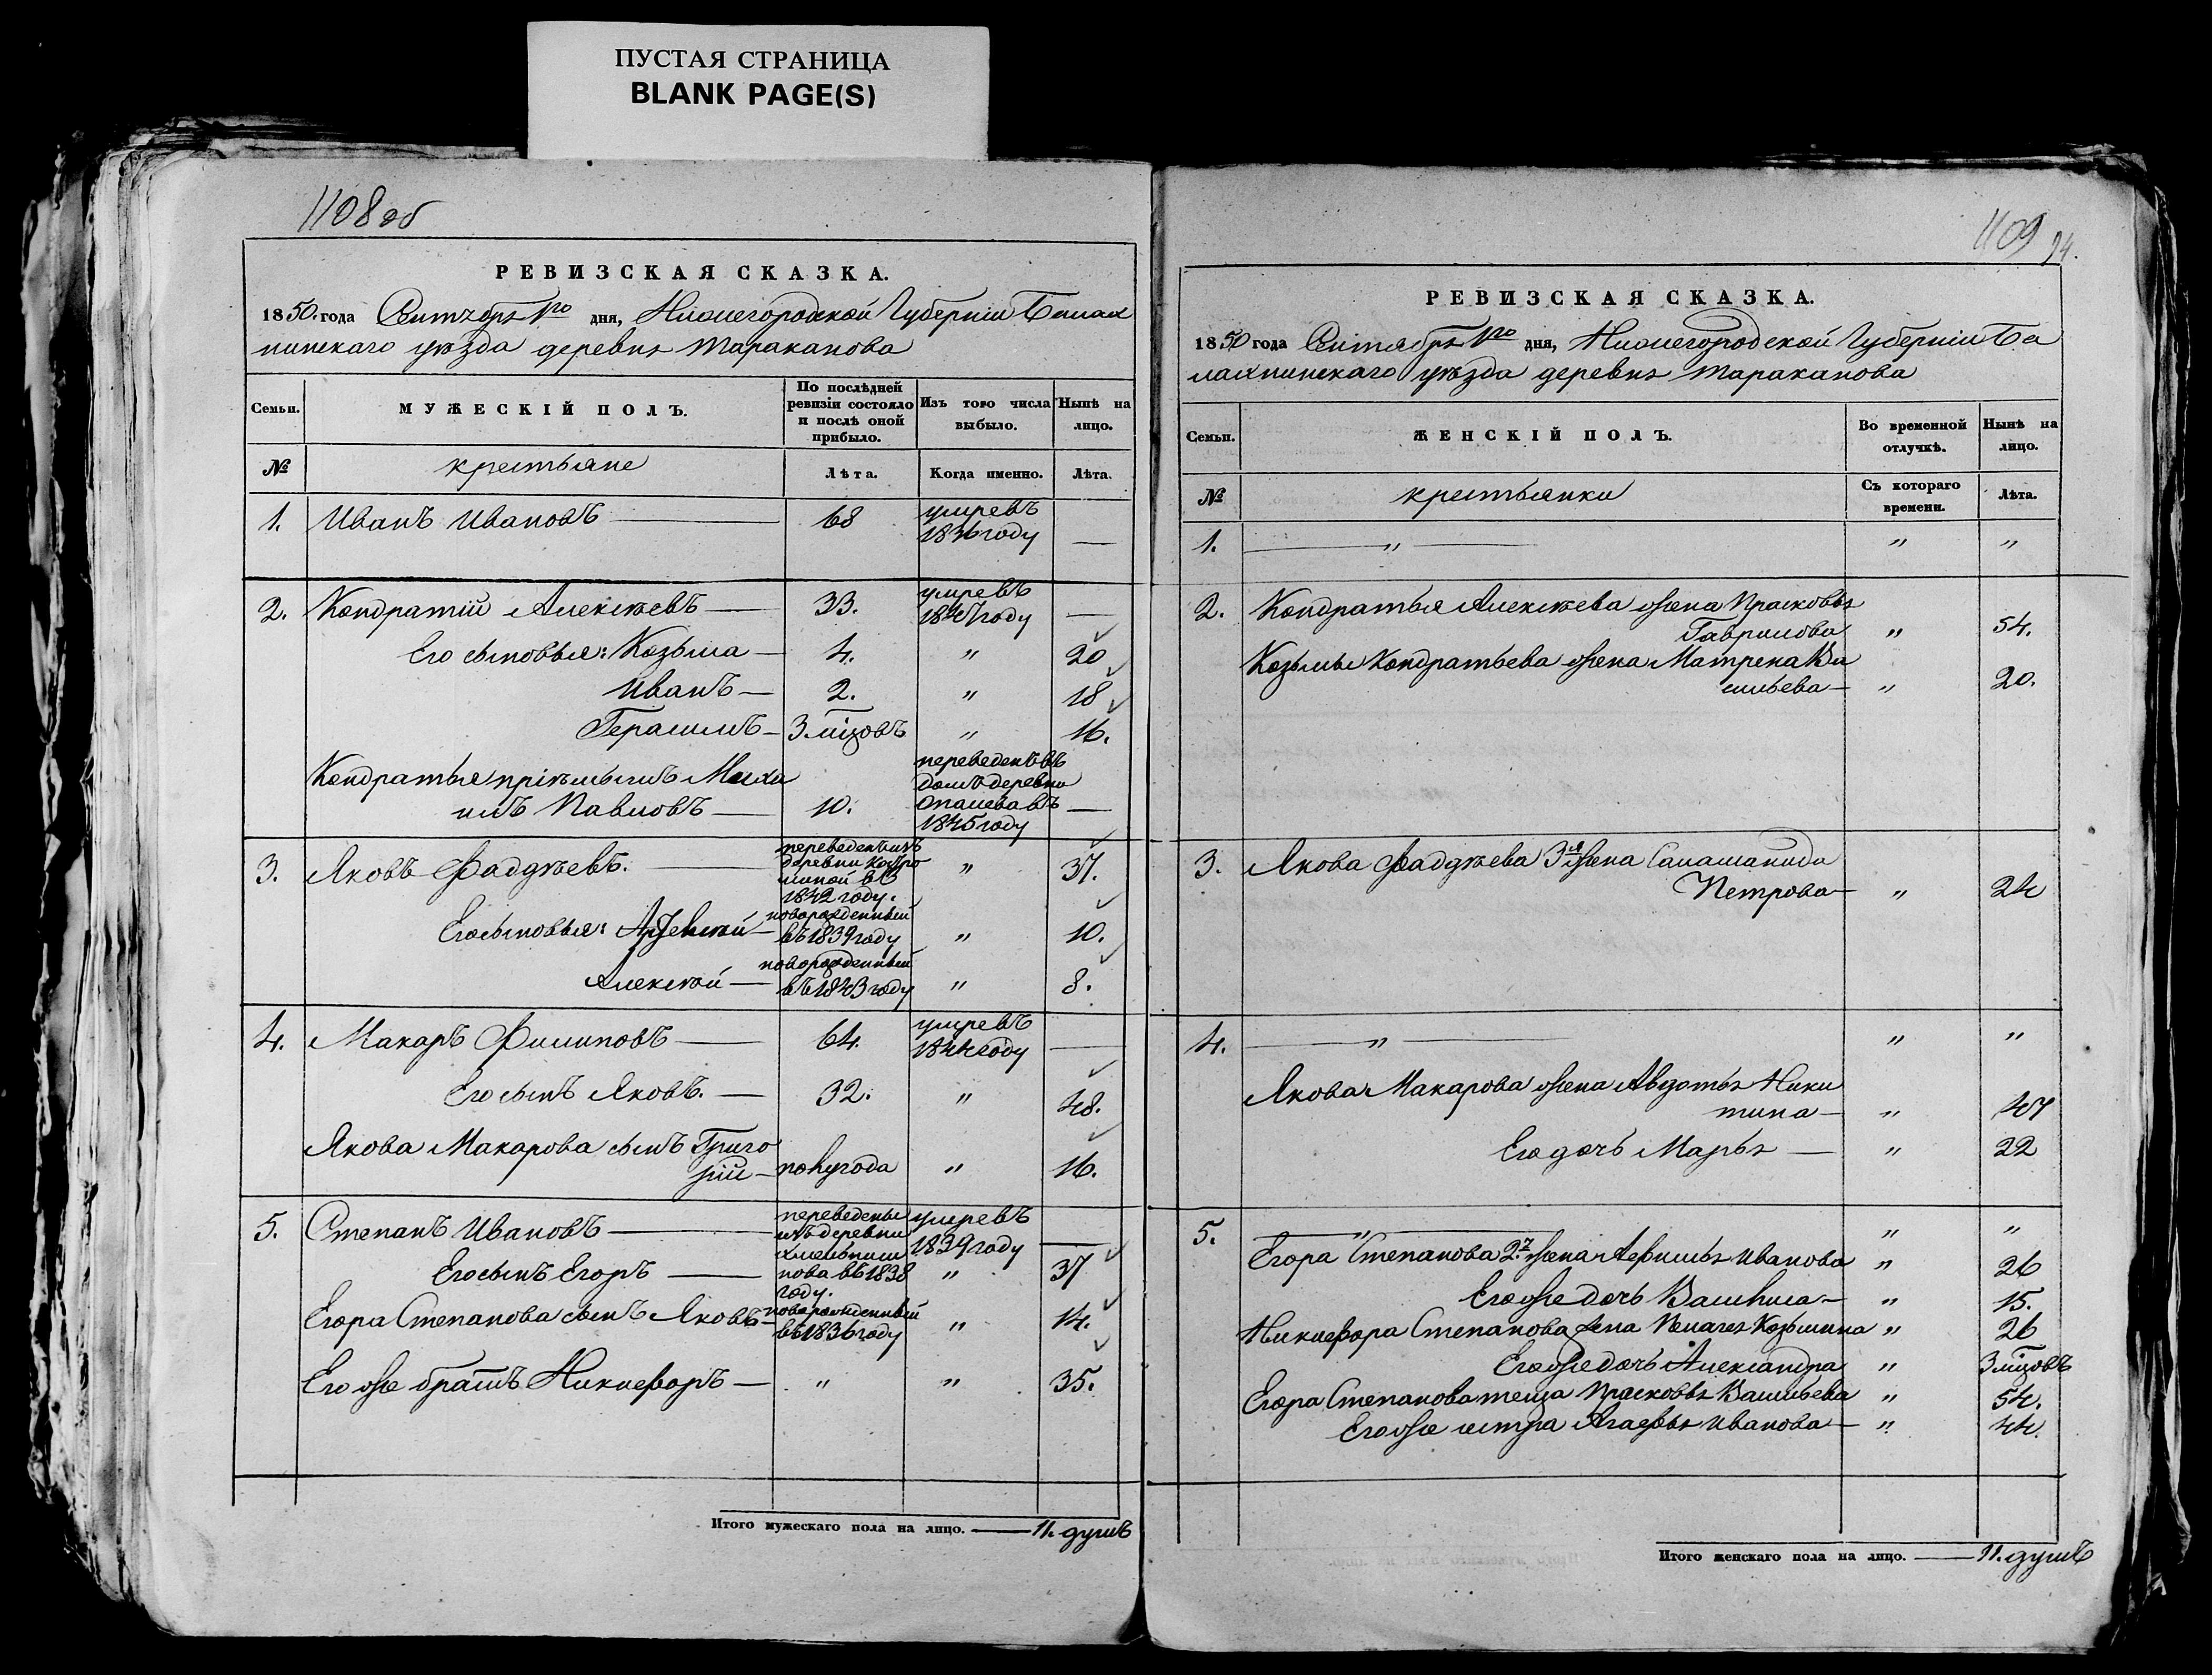 ПУСТАЯ СТРАНИЦА
BLANK PAGE(S)
1108 об
РЕВИЗСКАЯ СКАЗКА.
1850. года Сентября 1го дня, Нижегородской Губерніи Балах
нинскаго уѣзда деревня Тараканова
Семьи. МУЖЕСКІЙ ПОЛЪ. По послѣдней ревизіи состояло и послѣ оной прибыло. Изъ того числа выбыло. Нынѣ на лицо.
№ крестьяне Лѣта. Когда именно. Лѣта.
1. Иванъ Ивановъ — 68 умревъ 1836 году —
2. Кондратій Алексѣевъ — 33. умревъ 1847 году —
Его сыновья: Козьма — 4. " 20
Иванъ — 2. " 18
Герасимъ — 3 мцовъ " 16.
Кондратья пріемышъ Миха
илъ Павловъ — 10. переведенъ въ домъ деревни Опалева въ 1845 году —
3. Яковъ Фаддѣевъ. — переведенъ изъ деревни въ 1842 году. " 37.
Его сыновья: — новорожденный въ 1839 году " 10.
Алексѣй — новорожденный въ 1843 году " 8.
4. Макаръ Филиповъ — 64. умревъ 1844 году —
Его сынъ Яковъ. — 32. " 48.
Якова Макарова сынъ Григо
рій — полугода " 16.
5. Степанъ Ивановъ — переведены изъ деревни въ 1838 году. умревъ 1839 году —
Его сынъ Егоръ — " 37
Егора Степанова сынъ Яковъ — новорожденный въ 1836 году " 14.
Его же братъ Никифоръ — " " 35.
Итого мужескаго пола на лицо. — 11. душъ
1109
94.
РЕВИЗСКАЯ СКАЗКА.
1850 года Сентября 1го дня, Нижегородской Губерніи Ба
лахнинскаго уѣзда деревня Тараканова
Семьи. ЖЕНСКІЙ ПОЛЪ. Во временной отлучкѣ. Нынѣ на лицо.
№ крестьянки Съ котораго времени. Лѣта.
1. — " — " "
2. Кондратья Алексѣева жена Прасковья
Гаврилова " 54.
Козьмы Кондратьева жена Матрена Ва
сильева — " 20.
3. Якова Фаддѣева 3я жена
Петрова — " 24
4. — " — " "
Якова Макарова жена Авдотья Ники
тина — " 47
Его дочь Марья — " 22
5. — " — " "
Егора Степанова 2я жена Афимья Иванова " 26
Его же дочь Василиса — " 15.
Никифора Степанова жена Пелагея Козьмина " 26
Его же дочь Александра " 3 мцовъ
Егора Степанова теща Прасковья Васильева " 54.
Его же сестра Агафья Иванова — " 44.
Итого женскаго пола на лицо. — 11. душъ